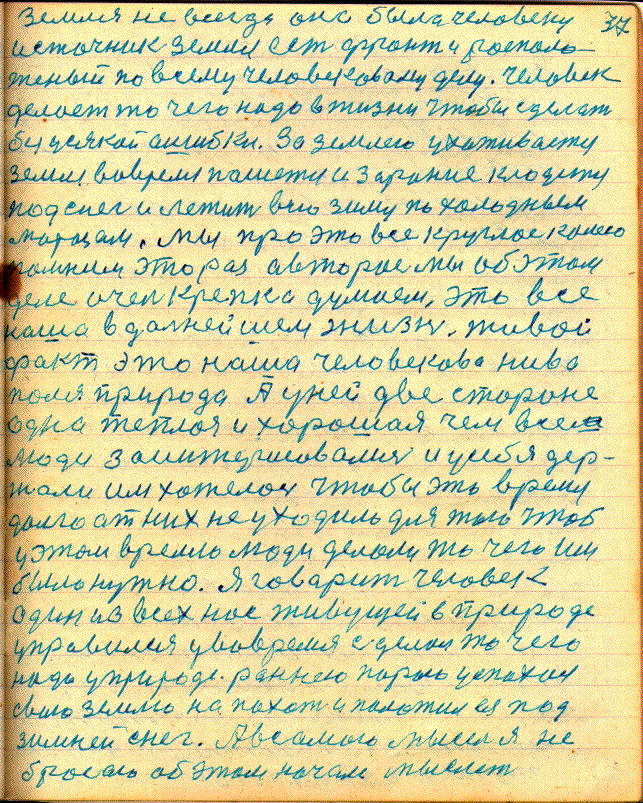 37
Земля не всегда она была человеку
источник земля ест фронт и росполо-
женый по всему человековому делу. Человек
делоет то чего надо в жизни чтобы сделат
без всякой ашибки. За землею ухаживаету
земли вовремя пашети и зарание кладету
под снег и летит всю зиму по холодным
морозам. Мы про это все круглое колесо
помним это раз авторое мы об этом
деле очен крепка думаем, это все
наша в далнейшем жизни. живой
факт это наша человекова нива
поля природа А у ней две стороне
одна теплоя и хорошая чем все
люди заинтерисовалися и у себя дер-
жали им хотелос чтобы это время
долго ат них не уходило для того чтоб
у этом времю люди делоли то чего им
было нужно. Я говарит человек
один из всех нас живущей в природе
управился у вовремя сделал то чего
надо у природе. раннею парою успахал
свою землю на похот и положил ея под
зимней снег. А всамого мысля не
бросаю об этом начал мыслет